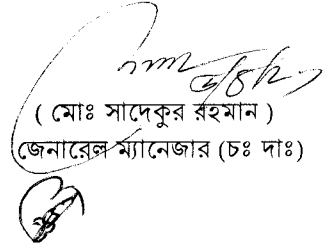 ( মোঃ সাদেকুর রহমান )
জেনারেল ম্যানেজার (চঃ দাঃ)